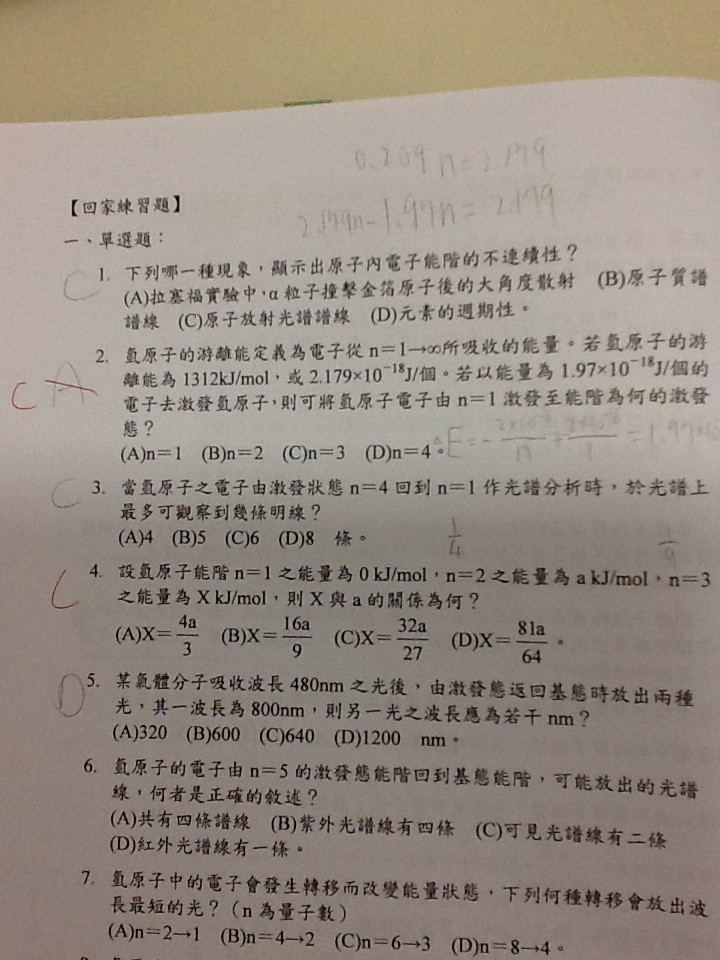 0.209n=2.179
2.179n-1.97n=2.179
【回家練習題】
一、單選題：
C 1. 下列哪一種現象，顯示出原子內電子能階的不連續性？
(A)拉塞福實驗中，α粒子撞擊金箔原子後的大角度散射 (B)原子質譜
譜線 (C)原子放射光譜譜線 (D)元素的週期性。
C A 2. 氫原子的游離能定義為電子從 n=1→∞所吸收的能量。若氫原子的游
離能為 1312kJ/mol，或 2.179×10⁻¹⁸J/個。若以能量為 1.97×10⁻¹⁸J/個的
電子去激發氫原子，則可將氫原子電子由 n=1 激發至能階為何的激發
態？
(A)n=1 (B)n=2 (C)n=3 (D)n=4。
C 3. 當氫原子之電子由激發狀態 n=4 回到 n=1 作光譜分析時，於光譜上
最多可觀察到幾條明線？
(A)4 (B)5 (C)6 (D)8 條。 1/4 1/9
C 4. 設氫原子能階 n=1 之能量為 0 kJ/mol，n=2 之能量為 a kJ/mol，n=3
之能量為 X kJ/mol，則 X 與 a 的關係為何？
(A)X=4a/3 (B)X=16a/9 (C)X=32a/27 (D)X=81a/64。
D 5. 某氣體分子吸收波長 480nm 之光後，由激發態返回基態時放出兩種
光，其一波長為 800nm，則另一光之波長應為若干 nm？
(A)320 (B)600 (C)640 (D)1200 nm。
6. 氫原子的電子由 n=5 的激發態能階回到基態能階，可能放出的光譜
線，何者是正確的敘述？
(A)共有四條譜線 (B)紫外光譜線有四條 (C)可見光譜線有二條
(D)紅外光譜線有一條。
7. 氫原子中的電子會發生轉移而改變能量狀態，下列何種轉移會放出波
長最短的光？（n 為量子數）
(A)n=2→1 (B)n=4→2 (C)n=6→3 (D)n=8→4。